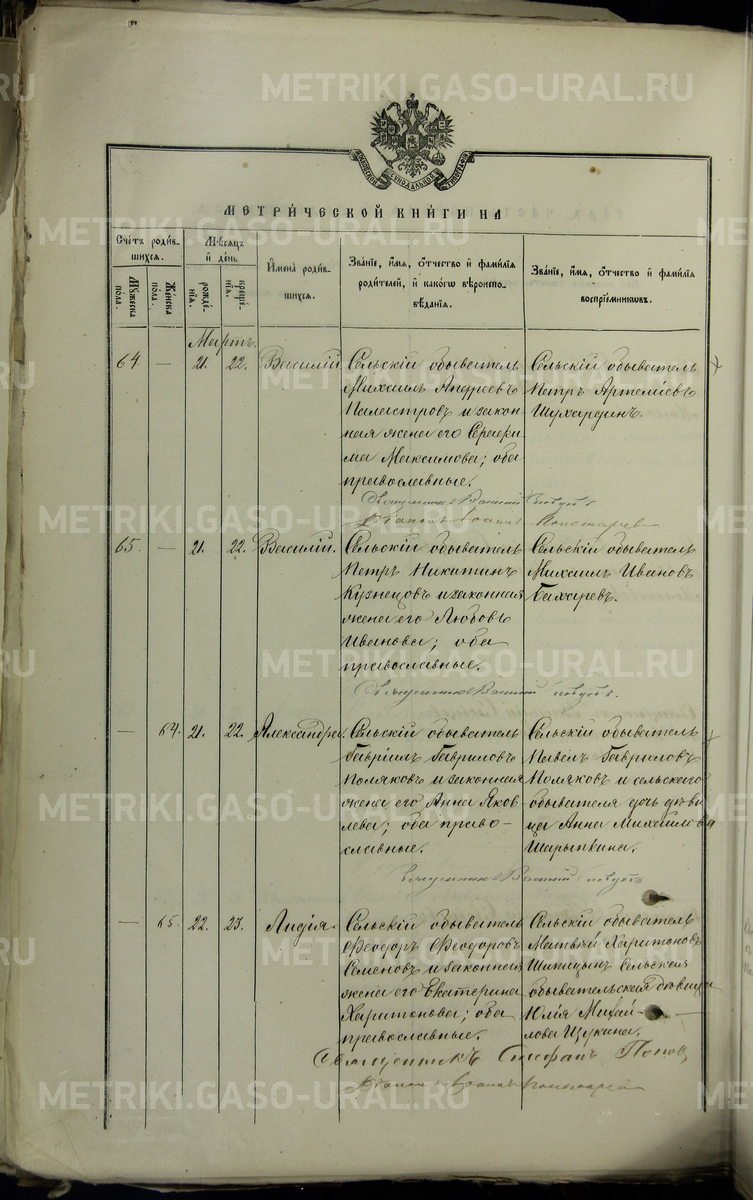 METRIKI.GASO-URAL.RU
МОСКОВСКОЙ СѴНОДАЛЬНОЙ ТИПОГРАФІИ
МЕТРИ́ЧЕСКОЙ КНИ́ГИ НА
Сче́тъ роди́вшихся.
Му́жеска по́ла.
Же́нска по́ла.
Мѣ́сяцъ и҆ де́нь
рожде́нїя.
креще́нїя.
И҆мена̀ роди́вшихся.
Зва́нїе, и҆́мя, ѻ҆́тчество и҆ фамі́лїа роди́телей, и҆ како́гѡ вѣроисповѣ́данїя.
Зва́нїе, и҆́мя, ѻ҆́тчество и҆ фамі́лїа воспрїе́мникѡвъ.
Мартъ.
64 — 21. 22. Василій.
Сельскій обыватель
Михаилъ Андреевъ
Палестровъ и закон
ная жена его Серафи
ма Максимова; оба
православные.
Сельскій обыватель
Петръ Артеміевъ
Шухардинъ.
Священникъ Василій
Діаконъ Іоаннъ
65. — 21. 22. Василій.
Сельскій обыватель
Петръ Никитинъ
Кузнецовъ и законная
жена его Любовь
Иванова; оба
православные.
Сельскій обыватель
Михаилъ Ивановъ
Бахаревъ.
Священникъ Василій
— 64. 21. 22. Александра.
Сельскій обыватель
Гавріилъ Гавриловъ
Поляковъ и законная
жена его Анна Яков
лева; оба право-
славные.
Сельскій обыватель
Павелъ Гавриловъ
Поляковъ и сельскаго
обывателя дочь дѣви
ца Анна Михайлова
Шарыпкина.
Священникъ Василій
— 65. 22. 23. Лидія.
Сельскій обыватель
Ѳеодоръ Ѳеодоровъ
Семеновъ и законная
жена его Екатерина
Харитонова; оба
православные.
Сельскій обыватель
Матвѣй Харитоновъ
Шипицынъ сельская
обывательская дѣвица
Юлія Михай-
лова Щукина.
Священникъ Стефанъ Поповъ
Діаконъ Іоаннъ